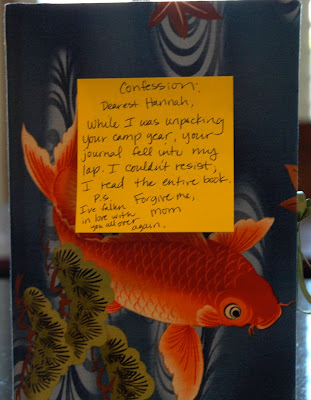 Confession:
Dearest Hannah,
While I was unpacking
your camp gear, your
journal fell into my
lap. I couldn't resist,
I read the entire book.
Forgive me,
mom
P.S.
I've fallen
in love with
you all over
again.